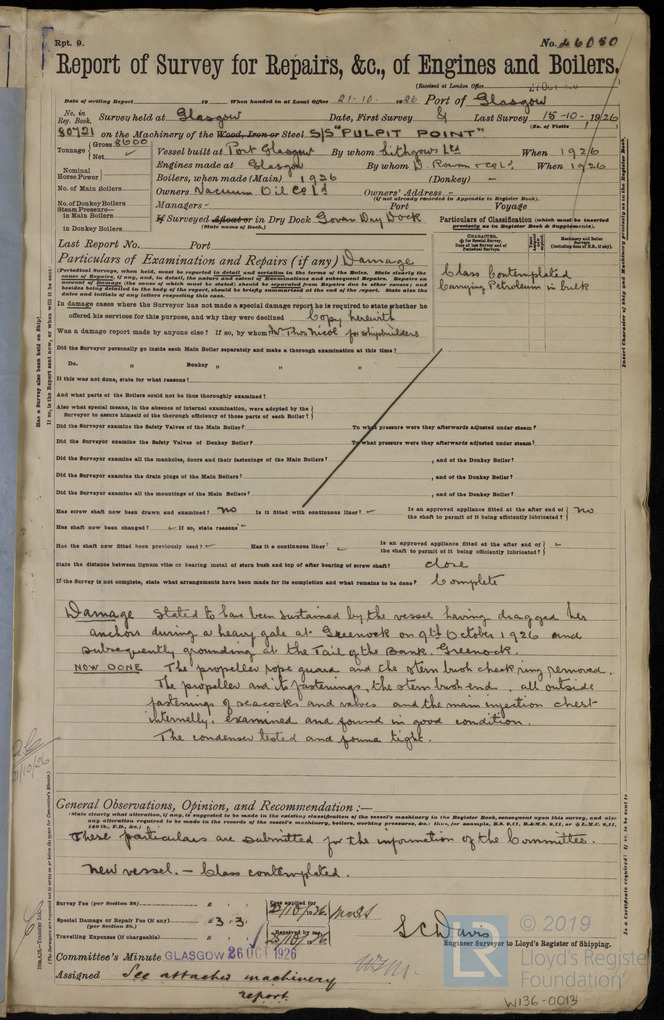 Rpt. 9.
No. 46080
Report of Survey for Repairs, &c., of Engines and Boilers.
(Received at London Office
Date of writing Report 19 When handed in at Local Office 21-10- 1926 Port of Glasgow
No. in Reg. Book. Survey held at Glasgow Date, First Survey & Last Survey 15-10- 1926
(No. of Visits )
80721 on the Machinery of the Wood, Iron or Steel S/S "PULPIT POINT"
Tonnage Gross 8600 Net
Vessel built at Port Glasgow By whom Lithgows Ltd When 1926
Engines made at Glasgow By whom D. Rowan & Co Ld When 1926
Nominal Horse Power
Boilers, when made (Main) 1926 (Donkey) -
No. of Main Boilers
Owners Vacuum Oil Co Ld Owners' Address -
(If not already recorded in Appendix to Register Book.)
No. of Donkey Boilers
Managers - Port Voyage
Steam Pressure— in Main Boilers
in Donkey Boilers
If Surveyed Afloat or in Dry Dock Govan Dry Dock
(State name of Dock.)
Particulars of Classification (which must be inserted precisely as in Register Book & Supplements).
Last Report No. Port
Particulars of Examination and Repairs (if any) Damage
Class Contemplated
Carrying Petroleum in bulk
(Periodical Surveys, when held, must be reported in detail and seriatim in the terms of the Rules. State clearly the
In damage cases where the Surveyor has not made a special damage report he is required to state whether he
offered his services for this purpose, and why they were declined Copy herewith
Was a damage report made by anyone else? If so, by whom? Mr Thos Nicol for shipbuilders
Did the Surveyor personally go inside each Main Boiler separately and make a thorough examination at this time?
Do. " Donkey " " " "
If this was not done, state for what reasons?
And what parts of the Boilers could not be thoroughly examined?
Also what special means, in the absence of internal examination, were adopted by the
Surveyor to assure himself of the thorough efficiency of those parts of each Boiler?
Did the Surveyor examine the Safety Valves of the Main Boiler? To what pressure were they afterwards adjusted under steam?
Did the Surveyor examine the Safety Valves of Donkey Boiler? To what pressure were they afterwards adjusted under steam?
Did the Surveyor examine all the manholes, doors and their fastenings of the Main Boilers? , and of the Donkey Boiler?
Did the Surveyor examine the drain plugs of the Main Boilers? , and of the Donkey Boiler?
Did the Surveyor examine all the mountings of the Main Boilers? , and of the Donkey Boiler?
Has screw shaft now been drawn and examined? No Is it fitted with continuous liner? Is an approved appliance fitted at the after end of the shaft to permit of it being efficiently lubricated? no
Has shaft now been changed? If so, state reasons
Has the shaft now fitted been previously used? Has it a continuous liner? Is an approved appliance fitted at the after end of the shaft to permit of it being efficiently lubricated?
State the distance between lignum vitæ or bearing metal of stern bush and top of after bearing of screw shaft? close
If the Survey is not complete, state what arrangements have been made for its completion and what remains to be done? Complete
Damage stated to have been sustained by the vessel having dragged her
anchors during a heavy gale at Greenock on 9th October 1926 and
subsequently grounding at the Tail of the Bank. Greenock.
NOW DONE The propeller rope guard and the stern bush check ring removed.
The propeller and its fastenings, the stern bush end, all outside
fastenings of seacocks and valves and the main injection chest
internally, examined and found in good condition.
The condenser tested and found tight.
21/10/26
General Observations, Opinion, and Recommendation :—
(State clearly what alteration, if any, is suggested to be made in the existing classification of the vessel's machinery in the Register Book, consequent upon this survey, and also
These particulars are submitted for the information of the Committee.
New vessel. - Class contemplated.
Survey Fee (per Section 28) £ : :
Special Damage or Repair Fee (if any) (per Section 28.) £ 3 . 3 :
Travelling Expenses (if chargeable) £ : :
Fees applied for
Received by me,
S C Davis
Engineer Surveyor to Lloyd's Register of Shipping.
Committee's Minute GLASGOW 26 OCT 1926
Assigned See attached machinery
report.
© 2019
Lloyd's Register
Foundation
LR
W136-0013